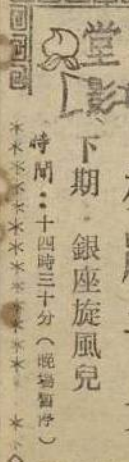 堂
影
下期・銀座旋風兒
時間：十四時三十分（晚場暫停）